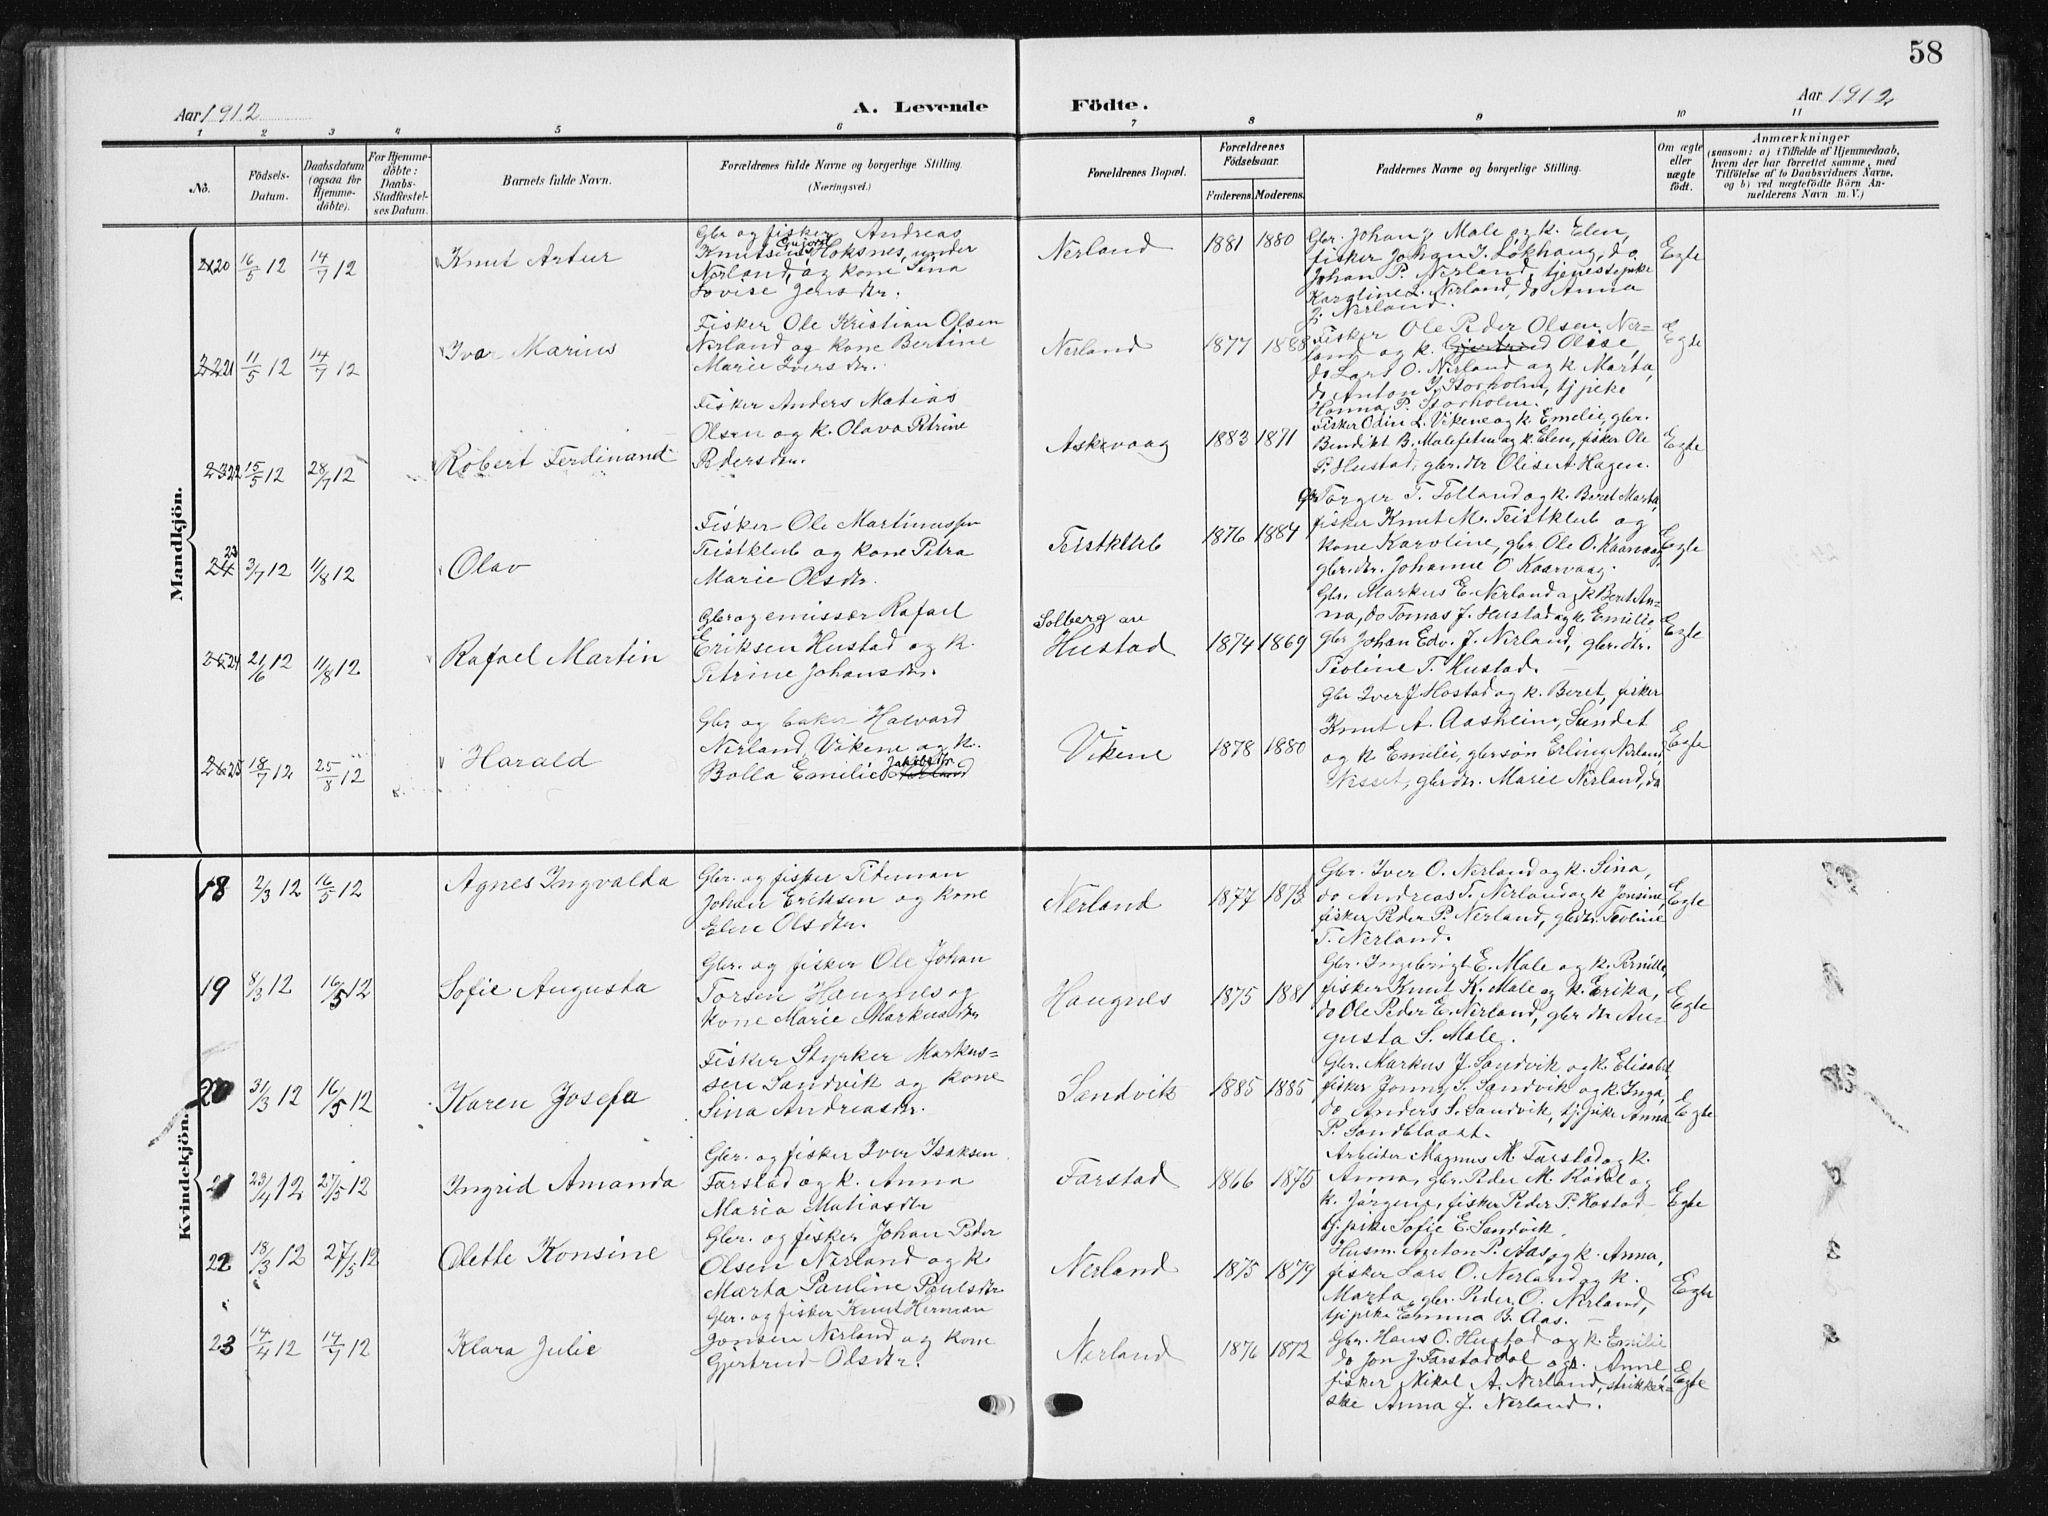 58
Aar 1912
A. Levende
Födte.
Aar 1912
1 2 3 4 5 6 7 8 9 10 11
No.
Födsels-Datum.
Daabsdatum (ogsaa for Hjemme-döbte).
For Hjemme-döbte: Daabs-Stadfæstel-ses Datum.
Barnets fulde Navn.
Forældrenes fulde Navne og borgerlige Stilling.
(Næringsvei.)
Forældrenes Bopæl.
Forældrenes Födselsaar.
Faderens. Moderens.
Faddernes Navne og borgerlige Stilling.
Om ægte eller uægte födt.
Anmærkninger
(saasom: a) i Tilfælde af Hjemmedaab,
hvem der har forrettet samme, med
Tilföielse af to Daabsvidners Navne,
og b) ved uægtefödte Börn An-
melderens Navn m. V.)
Mandkjön.
20 16/5 12 14/7 12 Knut Artur
Gbr og fisker Andreas
Knutsen Hoksnes, under
Nerland, og kone Sina
Lovise Jensdtr.
Nerland 1881 1880
Gbr. Johan J. Male og k. Elen,
fisker Johan J. Løkhaug, do
Johan P. Nerland, tjenestepike
Karoline L. Nerland, do Anna
J. Nerland.
Egte
21 11/5 12 14/7 12 Ivar Marius
Fisker Ole Kristian Olsen
Nerland og kone Bertine
Marie Iversdtr.
Nerland 1877 1888
Fisker Ole Peder Olsen Ner-
land og k. Gjertrud Olise,
do Lars O. Nerland og k. Marta,
do Anton J. Storholm, tj.pike
Hanna P. Storholm.
Egte
22 15/5 12 28/7 12 Robert Ferdinand
Fisker Anders Matias
Olsen og k. Olava Petrine
Pedersdtr.
Askevaag 1883 1871
Fisker Odin L. Vikene og k. Emelie, gbr.
Bendikt B. Malefeten og k. Elen, fisker Ole
P. Hustad, gbr.dtr Olise A. Hagen.
Egte
24 23 3/7 12 11/8 12 Olav
Fisker Ole Martinussen
Teistklub og kone Petra
Marie Olsdtr.
Teistklub 1876 1884
Gbr Torger T. Tolland og k. Beret Marta,
fisker Knut M. Teistklub og
kone Karoline, gbr. Ole O. Kaarvaag,
gbr.dtr. Johanne O Kaarvaag.
Egte
25 24 21/6 12 11/8 12 Rafael Martin
Gbr og emissær Rafael
Eriksen Hustad og k.
Petrine Johansdtr.
Solberg av
Hustad 1874 1869
Gbr. Markus E. Nerland og k Beret An-
na, do Tomas J. Hustad og k. Emilie,
gbr Johan Edv. J. Nerland, gbr.dtr.
Teoline T. Hustad.
Egte
26 25 18/7 12 25/8 12 Harald
Gbr og baker Halvard
Nerland, Vikene og k.
Bolla Emilie Jakobsdtr.
Vikene 1878 1880
Gbr Iver J Hostad og k. Beret, fisker
Knut A. Aasheim, Sundet
og k Emilie, gbr.søn Erling Nerland
Nesset, gbr.dtr. Marie Nerland, do
Egte
Kvindekjön.
18 2/3 12 16/5 12 Agnes Ingvalda
Gbr. og fisker Tideman
Johan Eriksen og kone
Elen Olsdtr.
Nerland 1877 1873
Gbr. Iver O. Nerland og k. Sina,
do Andreas T. Nerland og k Jensine,
fisker Peder P. Nerland, gbrdtr. Teoline
T. Nerland.
Egte
19 8/3 12 16/5 12 Sofie Augusta
Gbr. og fisker Ole Johan
Torsen Haugnes og
kone Marie Markusdtr
Haugnes 1875 1881
Gbr. Ingebrigt E. Male og k. Pernille,
fisker Knut K. Male og k. Erika,
do Ole Peder E. Nerland, gbr dtr Au-
gusta S. Male.
Egte
20 31/3 12 16/5 12 Karen Josefa
Fisker Styrker Markus-
sen Sandvik og kone
Sina Andreasdtr.
Sandvik 1885 1885
Gbr. Markus J. Sandvik og k. Elisabet,
fisker Jonny S. Sandvik og k. Inga,
do Anders S. Sandvik, tj. pike Anna
P. Sandblaast.
Egte
21 23/4 12 27/5 12 Ingrid Amanda
Gbr. og fisker Iver Isaksen
Farstad og k. Anna
Maria Matiasdtr
Farstad 1866 1875
Arbeider Magnus M. Farstad og k.
Anna, gbr. Peder M. Rødal og
k. Jørgena, fisker Peder P. Hostad
tj. pike Sofie E. Sandvik.
Egte
22 18/3 12 27/5 12 Olette Konsine
Gbr. og fisker Johan Peder
Olsen Nerland og k.
Marta Pauline Paulsdtr
Nerland 1875 1879
Husm. Anton P. Aas, og k. Anna,
fisker Lars O. Nerland og k.
Marta, gbr. Peder O. Nerland,
tj. pike Emma B. Aas.
Egte
23 14/4 12 14/7 12 Klara Julie
Gbr. og fisker Knut Herman
Jonsen Nerland og kone
Gjertrud Olsdtr.
Nerland 1876 1872
Gbr. Hans O. Hustad og k. Emilie
do Jon J. Farstaddal og k. Anne
fisker Nikol A. Nerland, strikker-
ske Anna J. Nerland.
Egte